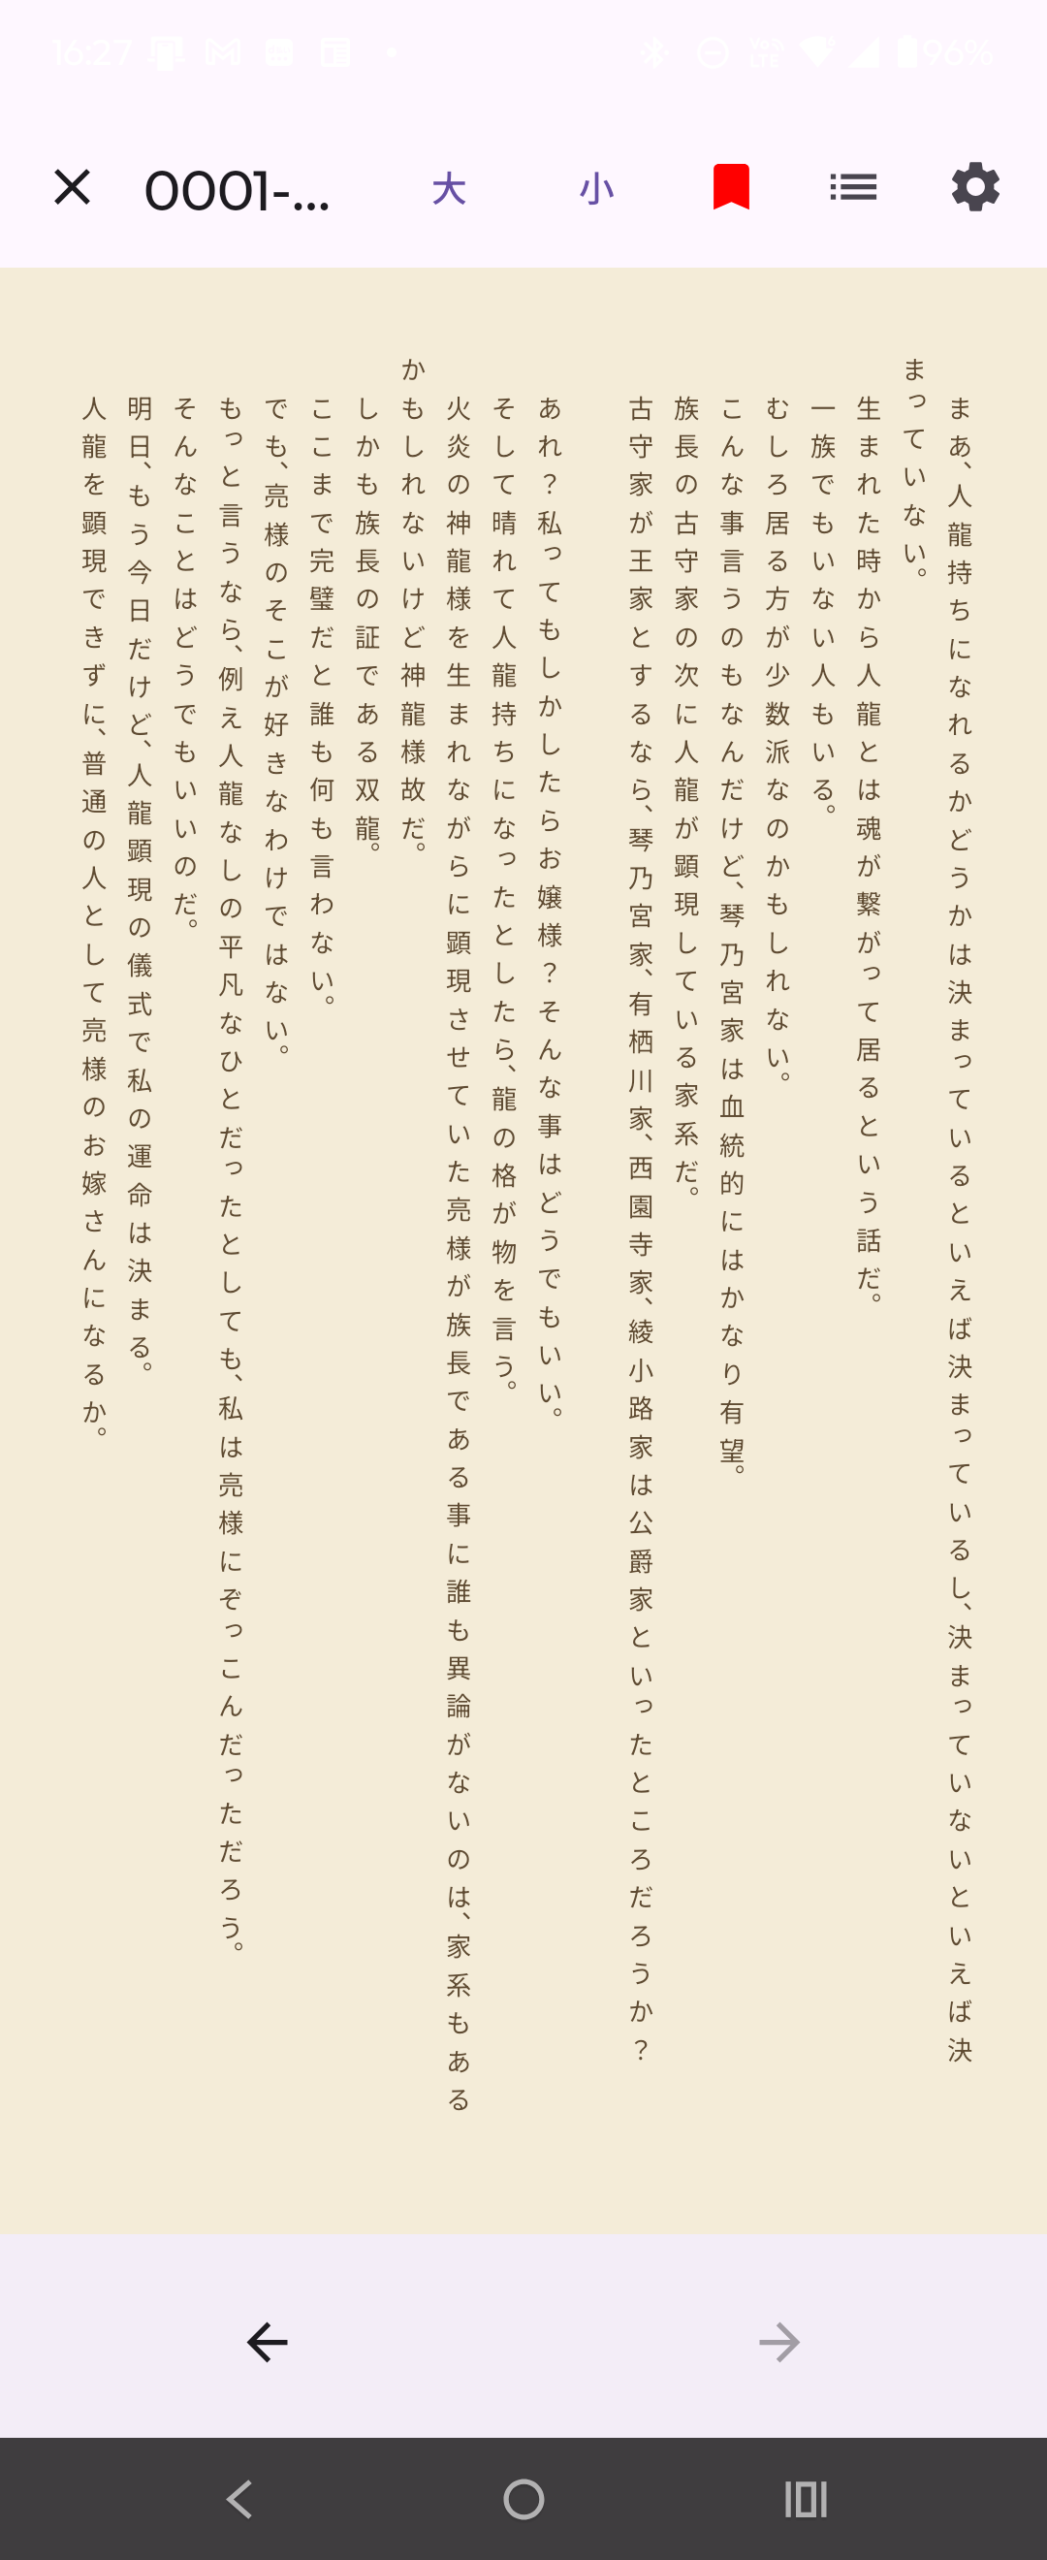 16:27
VoD LTE
96%
0001-...
大
小
まあ、人龍持ちになれるかどうかは決まっているといえば決まっているし、決まっていないといえば決
まっていない。
生まれた時から人龍とは魂が繋がって居るという話だ。
一族でもいない人もいる。
むしろ居る方が少数派なのかもしれない。
こんな事言うのもなんだけど、琴乃宮家は血統的にはかなり有望。
族長の古守家の次に人龍が顕現している家系だ。
古守家が王家とするなら、琴乃宮家、有栖川家、西園寺家、綾小路家は公爵家といったところだろうか？
あれ？私ってもしかしたらお嬢様？そんな事はどうでもいい。
そして晴れて人龍持ちになったとしたら、龍の格が物を言う。
火炎の神龍様を生まれながらに顕現させていた亮様が族長である事に誰も異論がないのは、家系もある
かもしれないけど神龍様故だ。
しかも族長の証である双龍。
ここまで完璧だと誰も何も言わない。
でも、亮様のそこが好きなわけではない。
もっと言うなら、例え人龍なしの平凡なひとだったとしても、私は亮様にぞっこんだっただろう。
そんなことはどうでもいいのだ。
明日、もう今日だけど、人龍顕現の儀式で私の運命は決まる。
人龍を顕現できずに、普通の人として亮様のお嫁さんになるか。